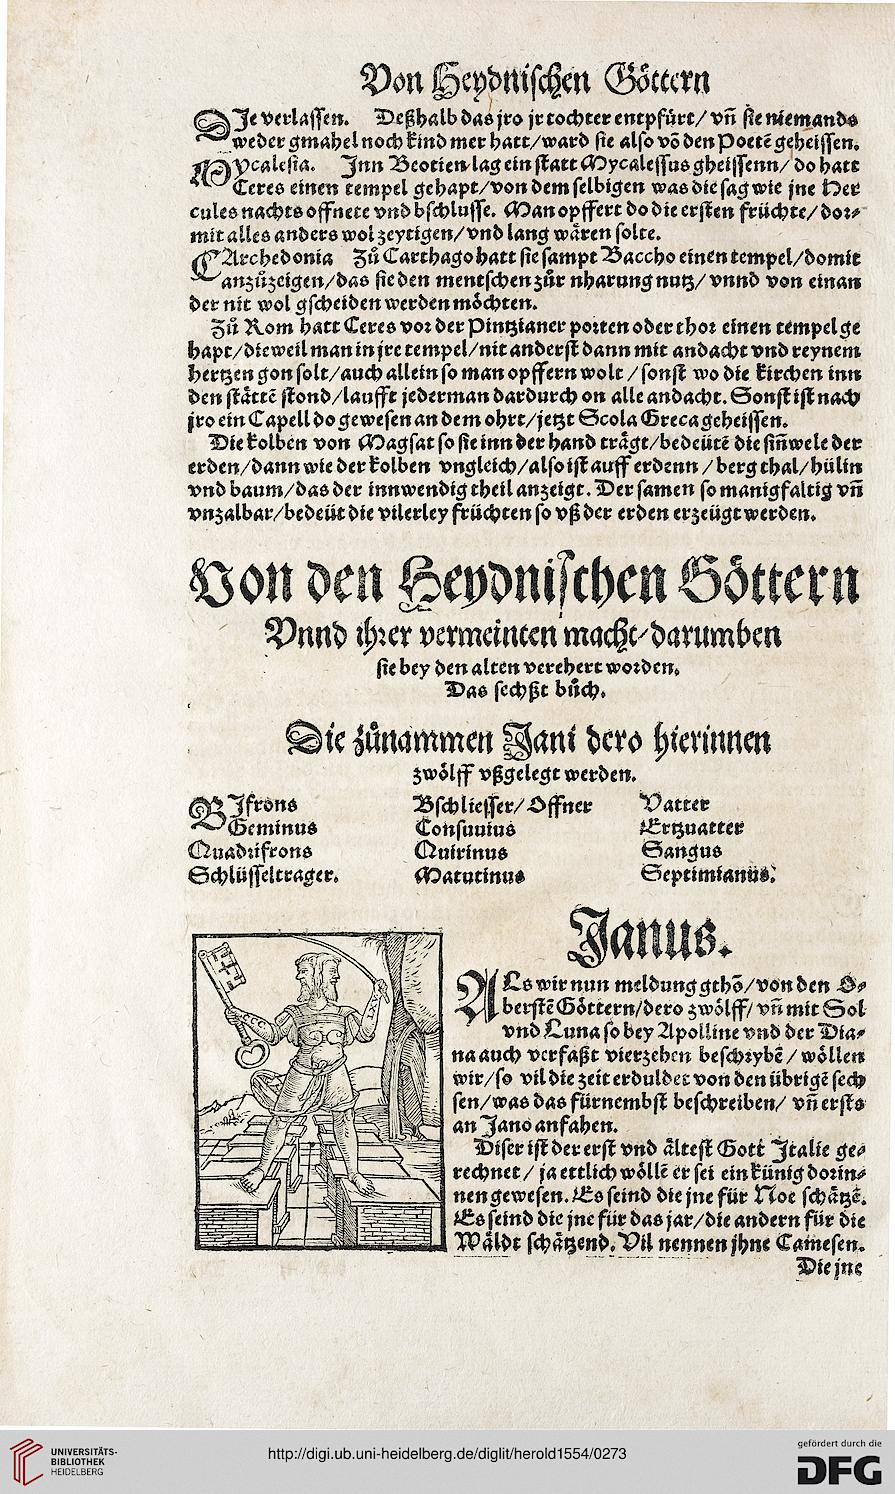 Von Heydnischen Göttern
DJe verlassen. Deßhalb das jro jr tochter entpfürt/ vñ sie niemands
weder gmahel noch kind mer hatt/ward sie also võ den Poetẽ geheissen.
MYcalesia. Jnn Beotien lag ein statt Mycalessus gheissenn/ do hatt
Ceres einen tempel gehapt/von dem selbigen was die sag wie jne Her
cules nachts offnete vnd bschlusse. Man opffert do die ersten früchte/ dor⸗
mit alles anders wol zeytigen/ vnd lang wären solte.
CArchedonia Zů Carthago hatt sie sampt Baccho einen tempel/domit
anzůzeigen/das sie den mentschen zůr nharung nutz/ vnnd von einan
der nit wol gscheiden werden möchten.
Zů Rom hatt Ceres vor der Pintzianer porten oder thor einen tempel ge
hapt/dieweil man in jre tempel/nit anderst dann mit andacht vnd reynem
hertzen gon solt/auch allein so man opffern wolt / sonst wo die kirchen inn
den stättẽ stond/laufft jederman dardurch on alle andacht. Sonst ist nach
jro ein Capell do gewesen an dem ohrt/jetzt Scola Greca geheissen.
Die kolben von Magsat so sie inn der hand trägt/bedeütẽ die siñwele der
erden/dann wie der kolben vngleich/also ist auff erdenn / berg thal/hülin
vnd baum/das der innwendig theil anzeigt. Der samen so manigfaltig vñ
vnzalbar/bedeüt die vilerley früchten so vß der erden erzeügt werden.
Von den Heydnischen Göttern
Vnnd ihrer vermeinten macht/darumben
sie bey den alten verehert worden.
Das sechßt bůch.
Die zůnammen Jani dero hierinnen
zwölff vßgelegt werden.
BJfrons Bschliesser/ Offner Vatter
Geminus Consuuius Ertzuatter
Quadrifrons Quirinus Sangus
Schlüsseltrager. Matutinus Septimianus.
Janus.
ALs wir nun meldung gthõ/von den O⸗
berstẽ Göttern/dero zwölff/ vñ mit Sol
vnd Luna so bey Apolline vnd der Dia⸗
na auch verfaßt vierzehen beschrybẽ / wöllen
wir/so vil die zeit erduldet von den übrigẽ sech
sen/was das fürnembst beschreiben/ vñ ersts
an Jano anfahen.
Diser ist der erst vnd ältest Gott Jtalie ge⸗
rechnet / ja ettlich wöllẽ er sei ein künig dorin⸗
nen gewesen. Es seind die jne für Noe schätzẽ.
Es seind die jne für das jar/die andern für die
Wäldt schätzend. Vil nennen jhne Camesen.
Die jne
UNIVERSITÄTS-
BIBLIOTHEK
HEIDELBERG
http://digi.ub.uni-heidelberg.de/diglit/herold1554/0273
gefördert durch die
DFG